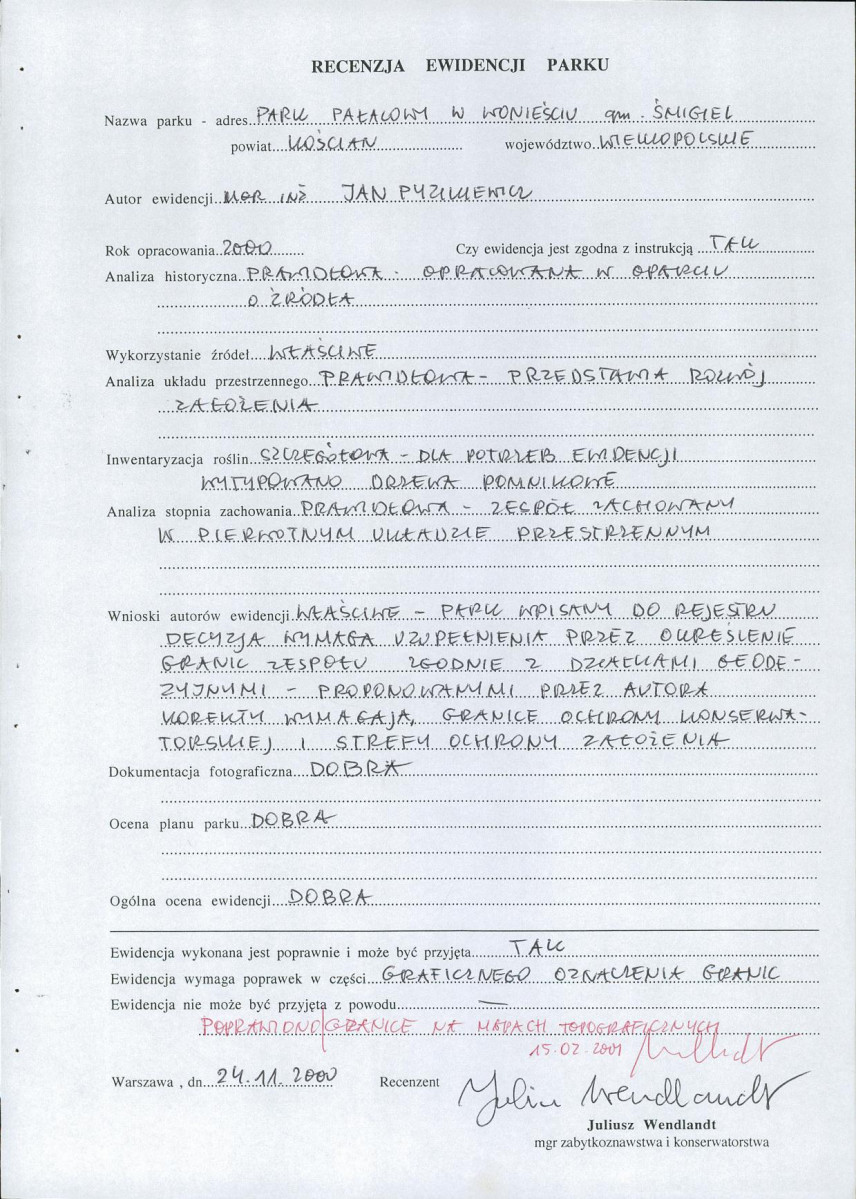 RECENZJA EWIDENCJI PARKU
Nazwa parku - adres PARK PAŁACOWY W WONIEŚCIU gm. ŚMIGIEL
powiat KOŚCIAN województwo WIELKOPOLSKIE
Autor ewidencji MGR INŻ JAN PYZIKIEWICZ
Rok opracowania 2000 Czy ewidencja jest zgodna z instrukcją TAK
Analiza historyczna PRAWIDŁOWA - OPRACOWANA W OPARCIU
O ŹRÓDŁA
Wykorzystanie źródeł WŁAŚCIWE
Analiza układu przestrzennego PRAWIDŁOWA - PRZEDSTAWIA ROZWÓJ
ZAŁOŻENIA
Inwentaryzacja roślin SZCZEGÓŁOWA - DLA POTRZEB EWIDENCJI
WYTYPOWANO DRZEWA POMNIKOWE
Analiza stopnia zachowania PRAWIDŁOWA - ZESPÓŁ ZACHOWANY
W PIERWOTNYM UKŁADZIE PRZESTRZENNYM
Wnioski autorów ewidencji WŁAŚCIWE - PARK WPISANY DO REJESTRU
DECYZJA WYMAGA UZUPEŁNIENIA PRZEZ OKREŚLENIE
GRANIC ZESPOŁU ZGODNIE Z DZIAŁKAMI GEODE-
ZYJNYMI - PROPONOWANYMI PRZEZ AUTORA
KOREKTY WYMAGAJĄ GRANICE OCHRONY KONSERWA-
TORSKIEJ I STREFY OCHRONY ZAŁOŻENIA
Dokumentacja fotograficzna DOBRA
Ocena planu parku DOBRA
Ogólna ocena ewidencji DOBRA
Ewidencja wykonana jest poprawnie i może być przyjęta TAK
Ewidencja wymaga poprawek w części GRAFICZNEGO OZNACZENIA GRANIC
Ewidencja nie może być przyjęta z powodu —
POPRAWIONO GRANICE NA MAPACH TOPOGRAFICZNYCH
15.02.2001 Wendlandt
Warszawa , dn. 24.11.2000 Recenzent Juliusz Wendlandt
Juliusz Wendlandt
mgr zabytkoznawstwa i konserwatorstwa